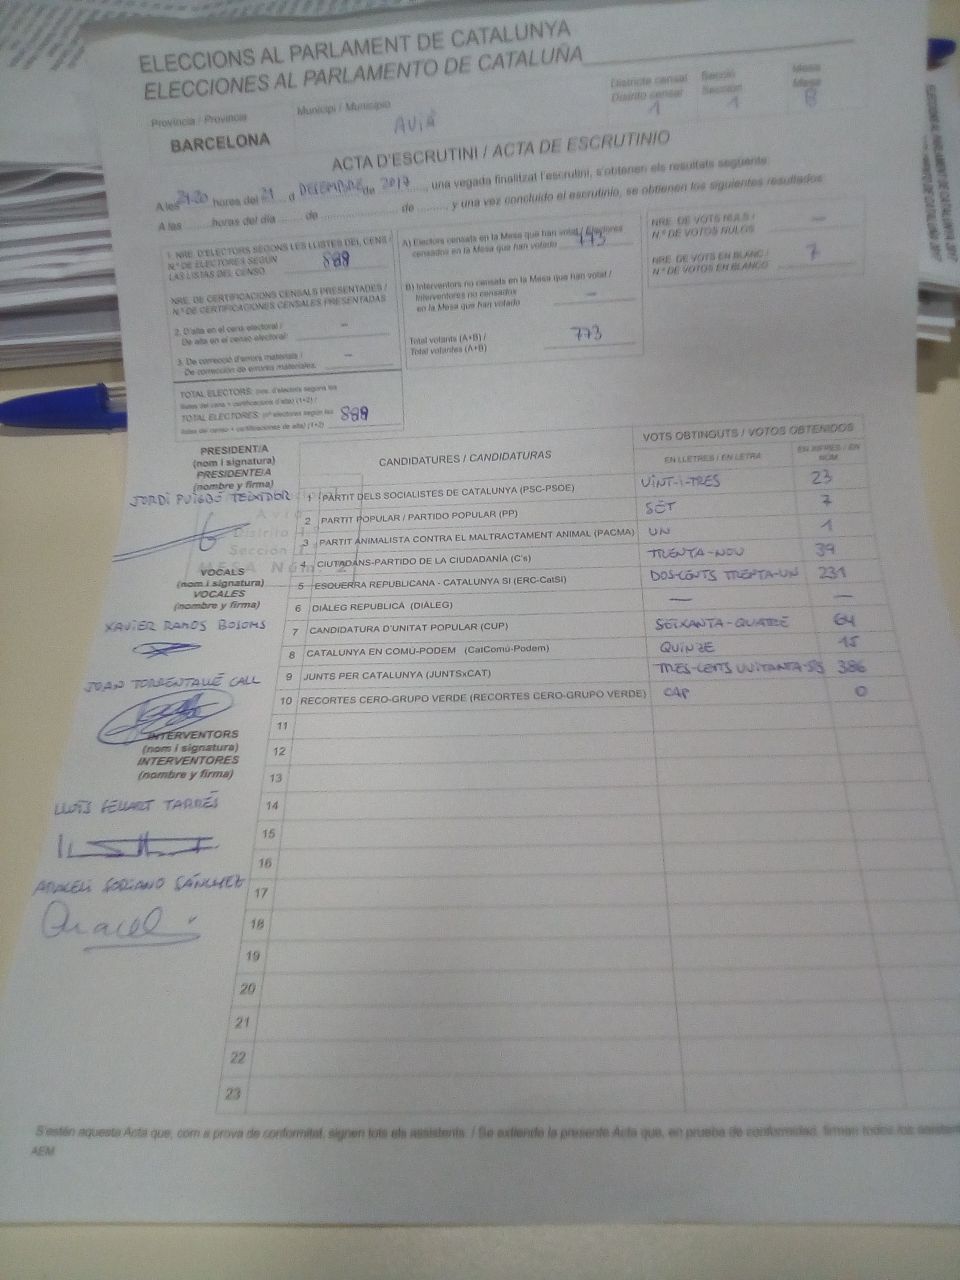 ELECCIONS AL PARLAMENT DE CATALUNYA
ELECCIONES AL PARLAMENTO DE CATALUÑA
Província / Provincia
BARCELONA
Municipi / Municipio
AVIÀ
Districte censal
Distrito censal
1
Secció
Sección
1
Mesa
Mesa
B
ACTA D'ESCRUTINI / ACTA DE ESCRUTINIO
A les 21:20 hores del 21 d DESEMBRE de 2017, una vegada finalitzat l'escrutini, s'obtenen els resultats següents:
A las ........ horas del día ........ de ........................ de ........, y una vez concluido el escrutinio, se obtienen los siguientes resultados:
1. NRE. D'ELECTORS SEGONS LES LLISTES DEL CENS /
N.º DE ELECTORES SEGÚN
LAS LISTAS DEL CENSO
889
NRE. DE CERTIFICACIONS CENSALS PRESENTADES /
N.º DE CERTIFICACIONES CENSALES PRESENTADAS
2. D'alta en el cens electoral /
De alta en el censo electoral:
–
3. De correcció d'errors materials /
De corrección de errores materiales:
–
TOTAL ELECTORS: (nre. d'electors segons les
llistes del cens + certificacions d'alta) (1+2) /
TOTAL ELECTORES: (nº electores según las
listas del censo + certificaciones de alta) (1+2)
889
A) Electors censats en la Mesa que han votat / Electores
censados en la Mesa que han votado
773
B) Interventors no censats en la Mesa que han votat /
Interventores no censados
en la Mesa que han votado
–
Total votants (A+B) /
Total votantes (A+B)
773
NRE. DE VOTS NULS /
N.º DE VOTOS NULOS
–
NRE. DE VOTS EN BLANC /
N.º DE VOTOS EN BLANCO
7
PRESIDENT/A
(nom i signatura)
PRESIDENTE/A
(nombre y firma)
JORDI PUIGBÓ TEIXIDOR
Avià
Distrito 1
Sección 1
MESA Núm.
VOCALS
(nom i signatura)
VOCALES
(nombre y firma)
XAVIER RAMOS BOSOMS
JOAN TORRENTALLÉ CALL
INTERVENTORS
(nom i signatura)
INTERVENTORES
(nombre y firma)
LLUÍS TARRÉS
ARACELI SORIANO SÁNCHEZ
Araceli
CANDIDATURES / CANDIDATURAS
VOTS OBTINGUTS / VOTOS OBTENIDOS
EN LLETRES / EN LETRA
EN XIFRES / EN NÚM.
1 PARTIT DELS SOCIALISTES DE CATALUNYA (PSC-PSOE) VINT-I-TRES 23
2 PARTIT POPULAR / PARTIDO POPULAR (PP) SET 7
3 PARTIT ANIMALISTA CONTRA EL MALTRACTAMENT ANIMAL (PACMA) UN 1
4 CIUTADANS-PARTIDO DE LA CIUDADANÍA (C's) TRENTA-NOU 39
5 ESQUERRA REPUBLICANA - CATALUNYA SÍ (ERC-CatSí) DOS-CENTS TRENTA-UN 231
6 DIÀLEG REPUBLICÀ (DIÀLEG) — —
7 CANDIDATURA D'UNITAT POPULAR (CUP) SEIXANTA-QUATRE 64
8 CATALUNYA EN COMÚ-PODEM (CatComú-Podem) QUINZE 15
9 JUNTS PER CATALUNYA (JUNTSxCAT) TRES-CENTS VUITANTA-SIS 386
10 RECORTES CERO-GRUPO VERDE (RECORTES CERO-GRUPO VERDE) CAP 0
11
12
13
14
15
16
17
18
19
20
21
22
23
S'estén aquesta Acta que, com a prova de conformitat, signen tots els assistents. / Se extiende la presente Acta que, en prueba de conformidad, firman todos los
AEM